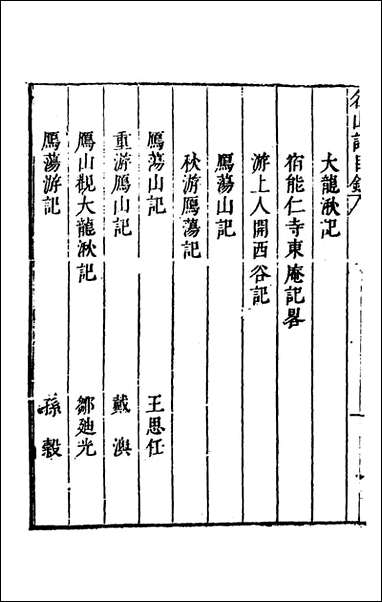 名山記目錄
大龍湫記
宿能仁寺東庵記畧
游上人開西谷記
鴈蕩山記
秋游鴈蕩記
鴈蕩山記 王思任
重游鴈山記 戴澳
鴈山觀大龍湫記 鄒迪光
鴈蕩游記 孫瑴